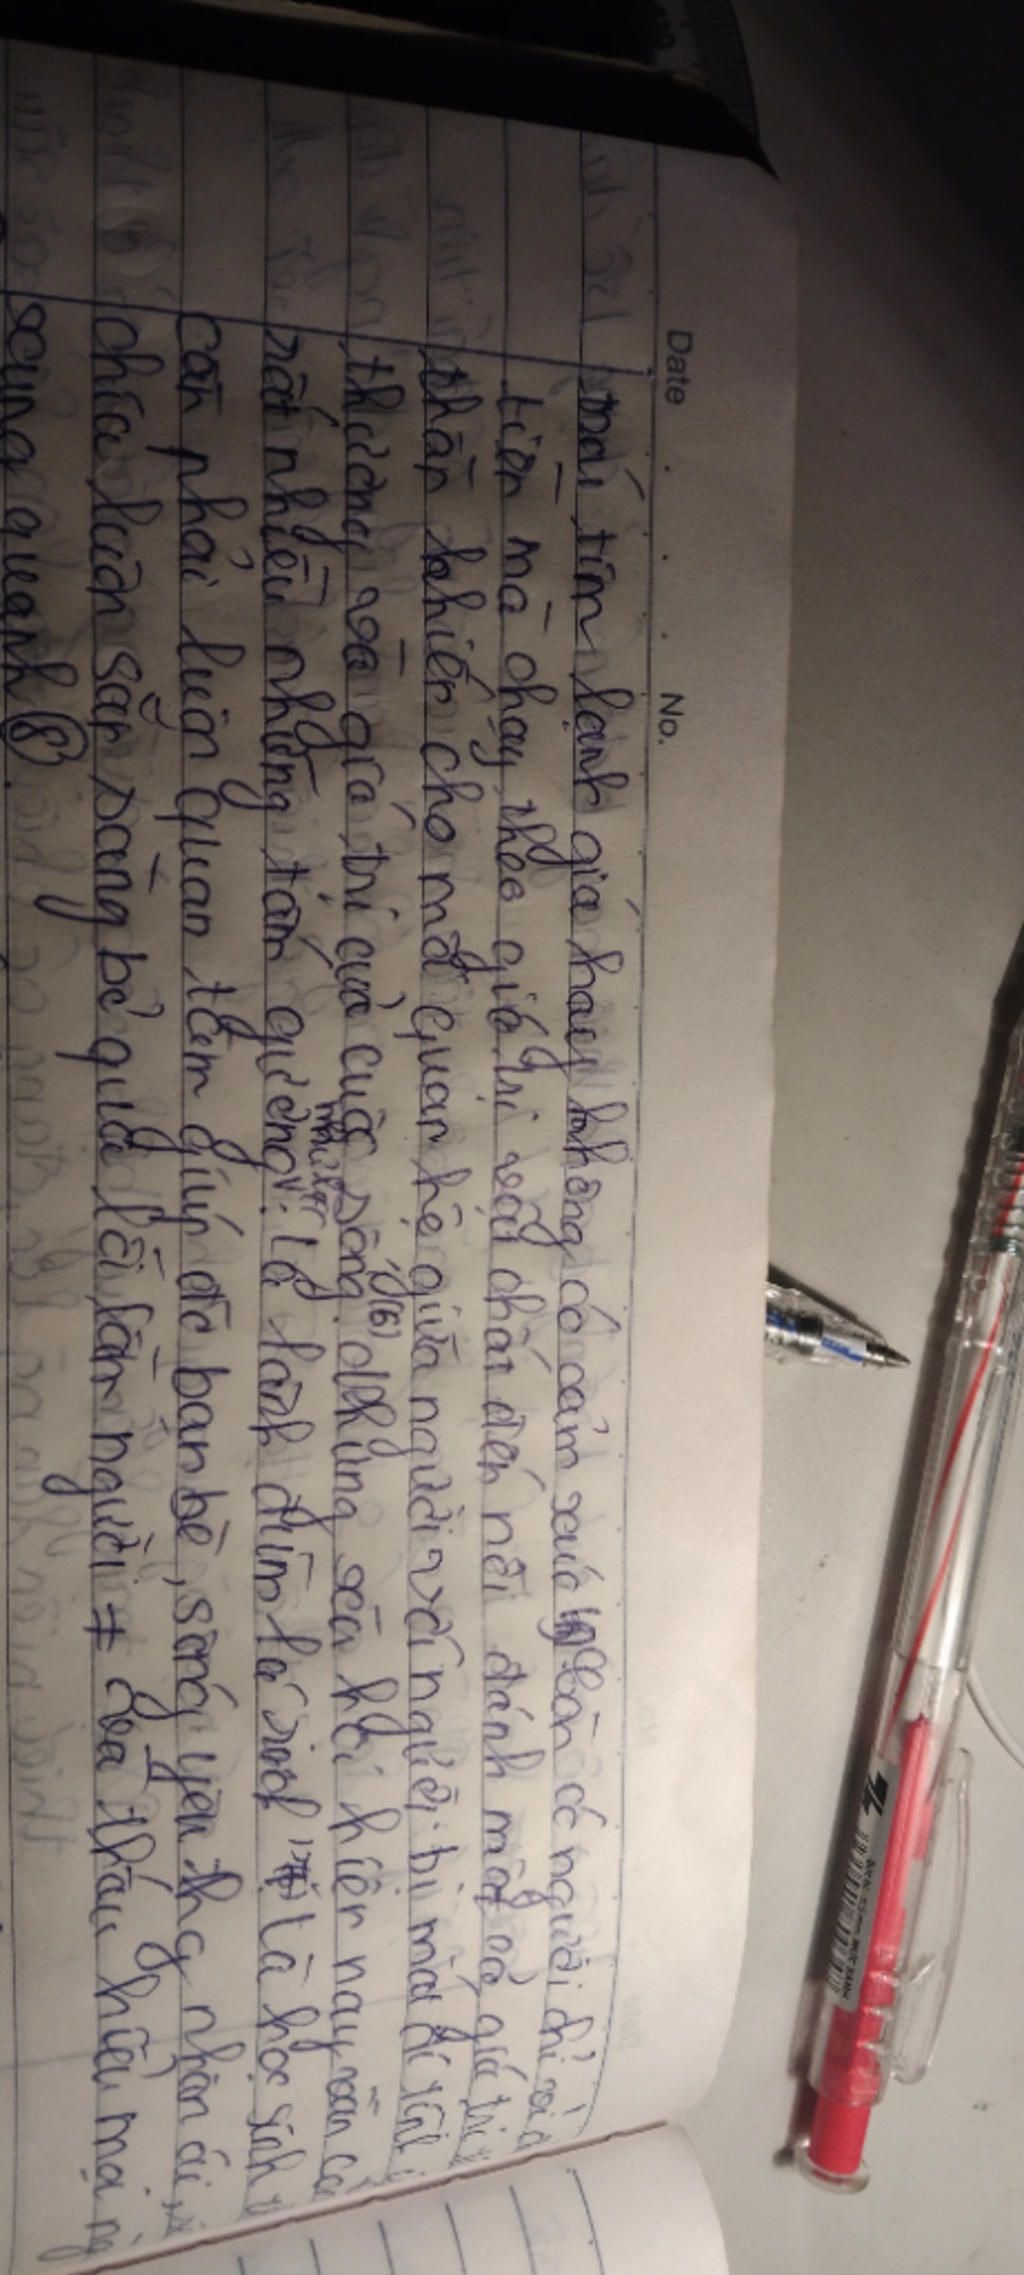 Date No.
mát, tìm lạnh giá hay không có cảm xúc, còn có người chỉ vì
tiền mà chạy theo giá trị vật chất đến nỗi đánh mất cả giá trị
thần khiến cho mối quan hệ giữa người với người bị mất đi tình
thương và giá trị của cuộc sống (6), nhưng xã hội hiện nay vẫn có
rất nhiều những tấm gương như "lá lành đùm lá rách", là học sinh
cần phải luôn quan tâm giúp đỡ bạn bè, sống yêu thg nhân ái,
chia, luôn sẵn sàng bỏ qua lỗi lầm người ≠ và thấu hiểu mọi ng
xung quanh (8).